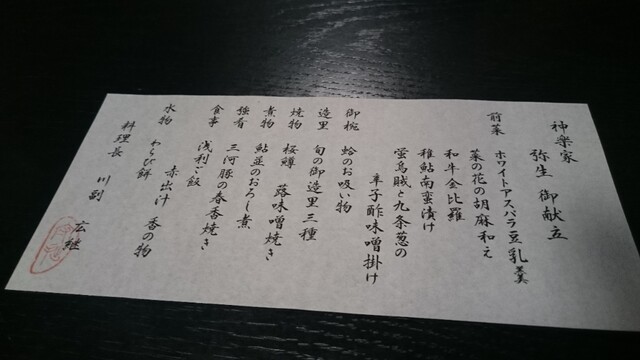 神楽家
弥生 御献立
前菜 ホワイトアスパラ豆乳羹
菜の花の胡麻和え
和牛金比羅
稚鮎南蛮漬け
蛍烏賊と九条葱の
辛子酢味噌掛け
御椀 蛤のお吸い物
造里 旬の御造里三種
焼物 桜鱒 蕗味噌焼き
煮物 鮎並のおろし煮
強肴 三河豚の春香焼き
食事 浅利ご飯
赤出汁 香の物
水物 わらび餅
料理長 川副 広継